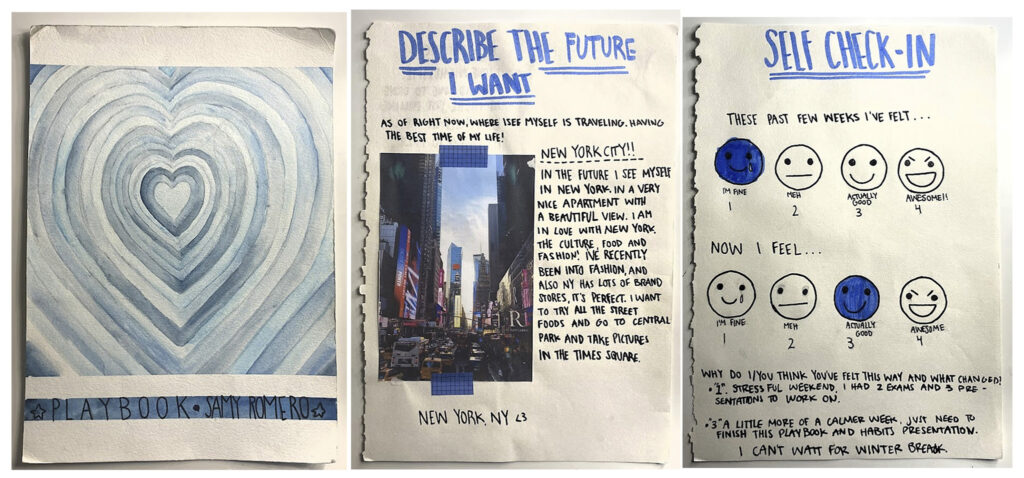 ☆ PLAYBOOK • SAMY ROMERO ☆
DESCRIBE THE FUTURE
I WANT
AS OF RIGHT NOW, WHERE I SEE MYSELF IS TRAVELING. HAVING
THE BEST TIME OF MY LIFE!
NEW YORK CITY!!
IN THE FUTURE I SEE MYSELF
IN NEW YORK. IN A VERY
NICE APARTMENT WITH
A BEAUTIFUL VIEW. I AM
IN LOVE WITH NEW YORK.
THE CULTURE, FOOD AND
FASHION! I'VE RECENTLY
BEEN INTO FASHION, AND
ALSO NY HAS LOTS OF BRAND
STORES, IT'S PERFECT. I WANT
TO TRY ALL THE STREET
FOODS AND GO TO CENTRAL
PARK AND TAKE PICTURES
IN THE TIMES SQUARE.
NEW YORK, NY <3
SELF CHECK-IN
THESE PAST FEW WEEKS I'VE FELT...
I'M FINE MEH ACTUALLY GOOD AWESOME!!
1 2 3 4
NOW I FEEL...
I'M FINE MEH ACTUALLY GOOD AWESOME
1 2 3 4
WHY DO I/YOU THINK YOU'VE FELT THIS WAY AND WHAT CHANGED?
• "1". STRESSFUL WEEKEND, I HAD 2 EXAMS AND 3 PRE-
SENTATIONS TO WORK ON.
• "3" A LITTLE MORE OF A CALMER WEEK. JUST NEED TO
FINISH THIS PLAYBOOK AND HABITS PRESENTATION.
I CANT WAIT FOR WINTER BREAK.